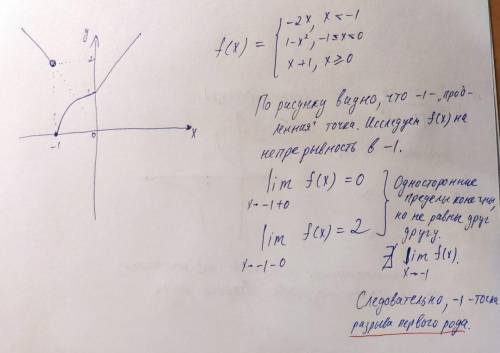 y
2
1
-1
0
x
f(x) = { -2x, x < -1
1-x², -1≤x≤0
x+1, x ≥ 0
По рисунку видно, что -1 - „проб-
лемная" точка. Исследуем f(x) на
непрерывность в -1.
lim f(x) = 0
x→-1+0
lim f(x) = 2
x→-1-0
} Односторонние
пределы конечны,
но не равны друг
другу.
∄ lim f(x).
x→-1
Следовательно, -1 - точка
разрыва первого рода.